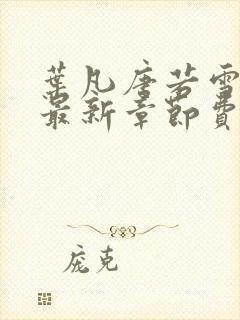 葉凡唐若雪
最新章節費
庞克